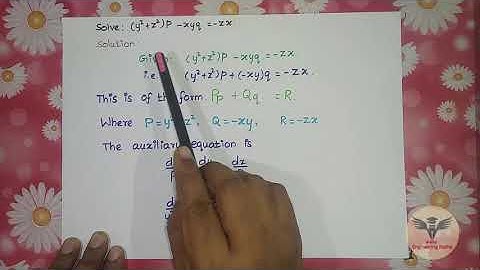 Solve: (y²+z²)P -xyq =-zx
Solution
(y²+z²)P -xyq =-zx
i.e. (y²+z²)P+(-xy)q =-zx.
This is of the form Pp + Qq = R.
Where P=y²+z², Q=-xy, R=-zx
The auxiliary equation is
dz
Engineering Maths